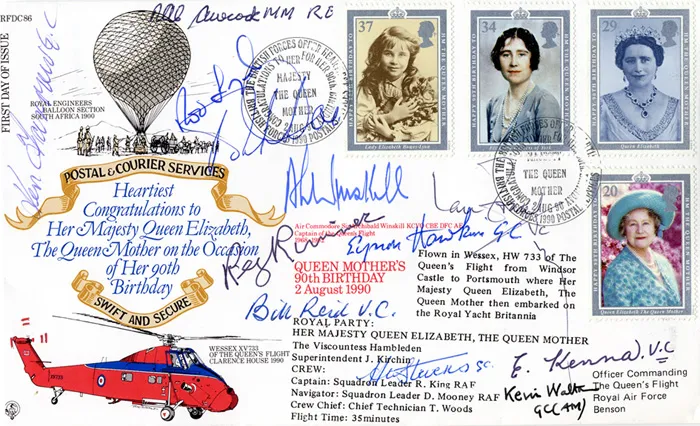 RFDC86
FIRST DAY OF ISSUE
ROYAL ENGINEERS
BALLOON SECTION
SOUTH AFRICA 1900
POSTAL & COURIER SERVICES
Heartiest
Congratulations to
Her Majesty Queen Elizabeth,
The Queen Mother on the Occasion
of Her 90th
Birthday
SWIFT AND SECURE
WESSEX XV733
OF THE QUEEN'S FLIGHT
CLARENCE HOUSE 1990
MM RE
37
HAPPY 90TH BIRTHDAY TO
HM THE QUEEN MOTHER
Lady Elizabeth Bowes-Lyon
34
HAPPY 90TH BIRTHDAY TO
HM THE QUEEN MOTHER
29
HAPPY 90TH BIRTHDAY TO
HM THE QUEEN MOTHER
Queen Elizabeth
20
HAPPY 90TH BIRTHDAY TO
HM THE QUEEN MOTHER
Queen Elizabeth The Queen Mother
MAJESTY
THE QUEEN
MOTHER
THE QUEEN
MOTHER
2 AUG 90
1990
Air Commodore Sir Archibald Winskill KCVO CBE DFC AE
Captain of the Queen's Flight
Eynon Hawkins GC
QUEEN MOTHER'S
90th BIRTHDAY
2 August 1990
Flown in Wessex, HW 733 of
The Queen's Flight from Windsor
Castle to Portsmouth where Her
Majesty Queen Elizabeth, The
Queen Mother then embarked on
the Royal Yacht Britannia
Bill Reid V.C.
ROYAL PARTY:
HER MAJESTY QUEEN ELIZABETH, THE QUEEN MOTHER
The Viscountess Hambleden
Superintendent J. Kirchin
CREW:
Captain: Squadron Leader R. King RAF
Navigator: Squadron Leader D. Mooney RAF
Crew Chief: Chief Technician T. Woods
Flight Time: 35minutes
E. Kenna V.C
GC(AM)
Officer Commanding
The Queen's Flight
Royal Air Force
Benson